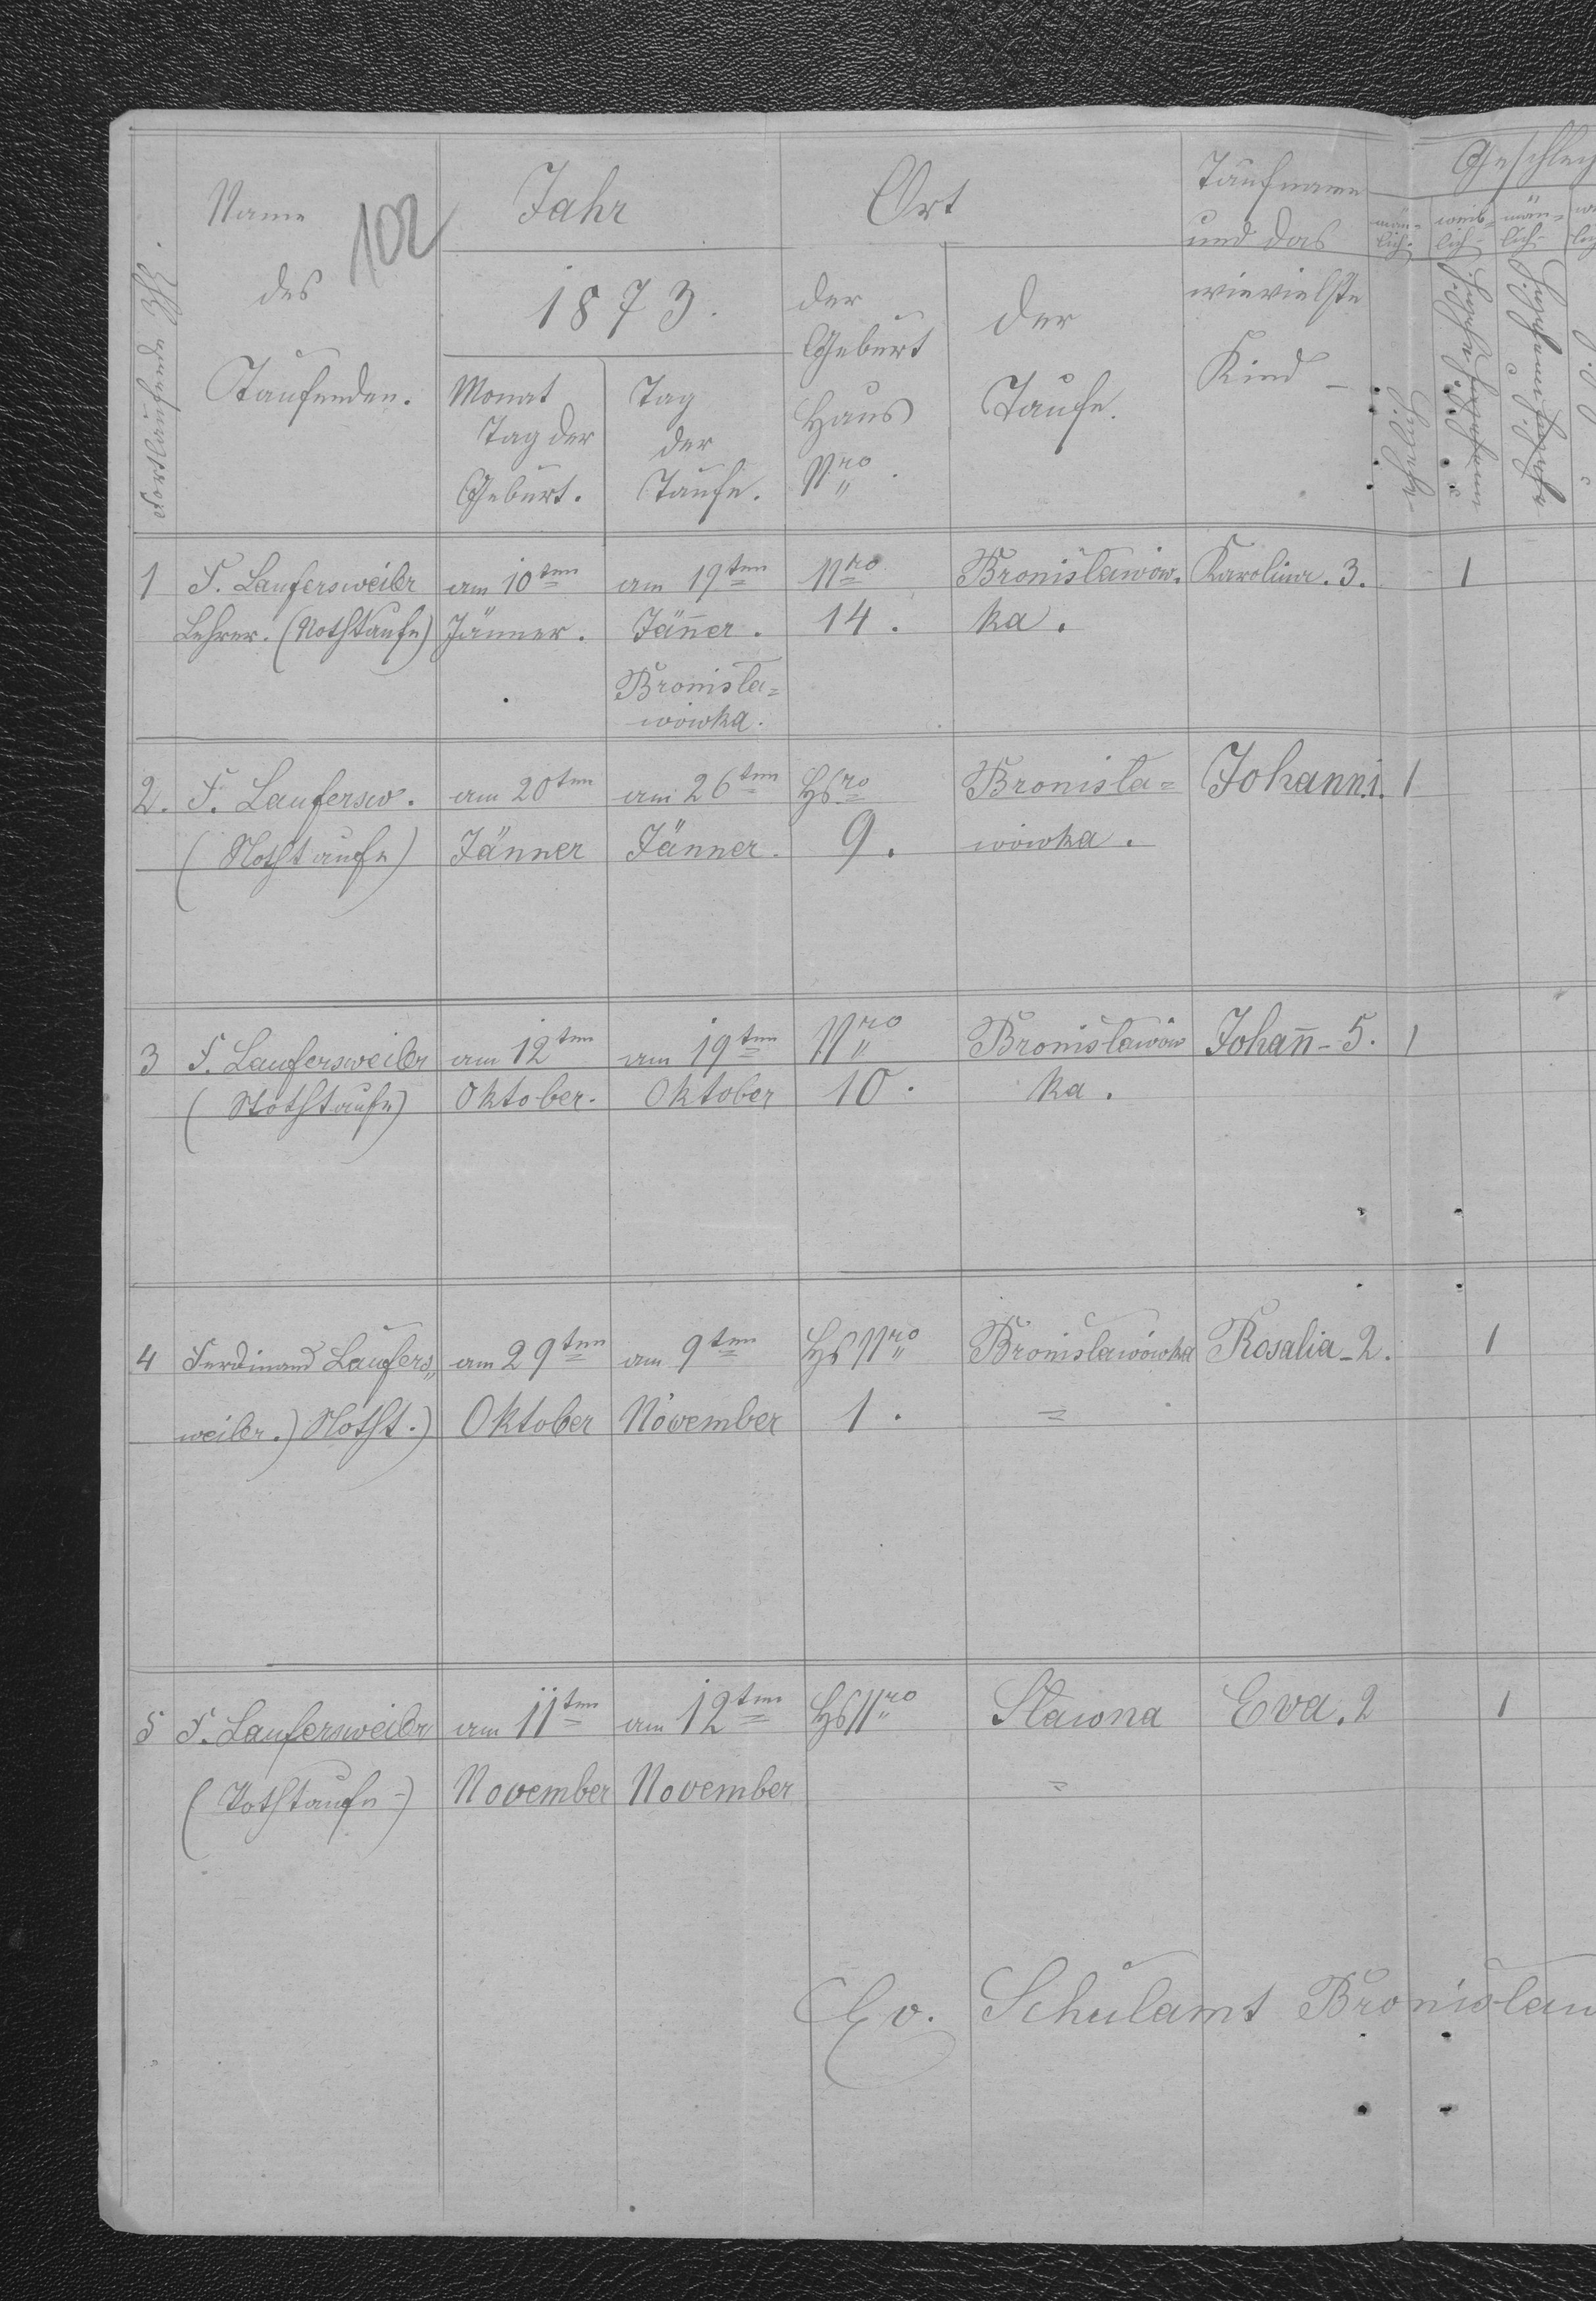 102
Fortlaufende Zhl.
Name
des
Taufenden.
Jahr
1873.
Monat
Tag der
Geburt.
Tag
der
Taufe.
Ort
der
Geburt
Haus
Nro.
der
Taufe.
Taufname
und das
wievielste
Kind -
Geschlech
män=
lich.
weib=
lich-
män=
lich-
1 F. Laufersweiler am 10ten am 19ten Nro Bronislawów. Karolina. 3. 1
Lehrer. (Nothtaufe) Jänner. Jäner. 14. ka.
Bronisla=
wówka.
2. F. Laufersw. am 20ten am 26ten Hsro Bronisla= Johann.1. 1
(Nothtaufe) Jänner Jänner. 9. wówka.
3 F. Laufersweiler am 12ten am 19ten Nro Bronislawów Johañ-5. 1
(Nothtaufe) Oktober. Oktober 10. ka.
4 Ferdinand Laufers„ am 29ten am 9ten Hs Nro Bronislawówka Rosalia-2. 1
weiler.) Notht.) Oktober November 1. =
5 F. Laufersweiler am 11ten am 12ten Hs Nro Slawna Eva.2 1
(Nothtaufe-) November November =
Ev. Schulamt Bronislaw